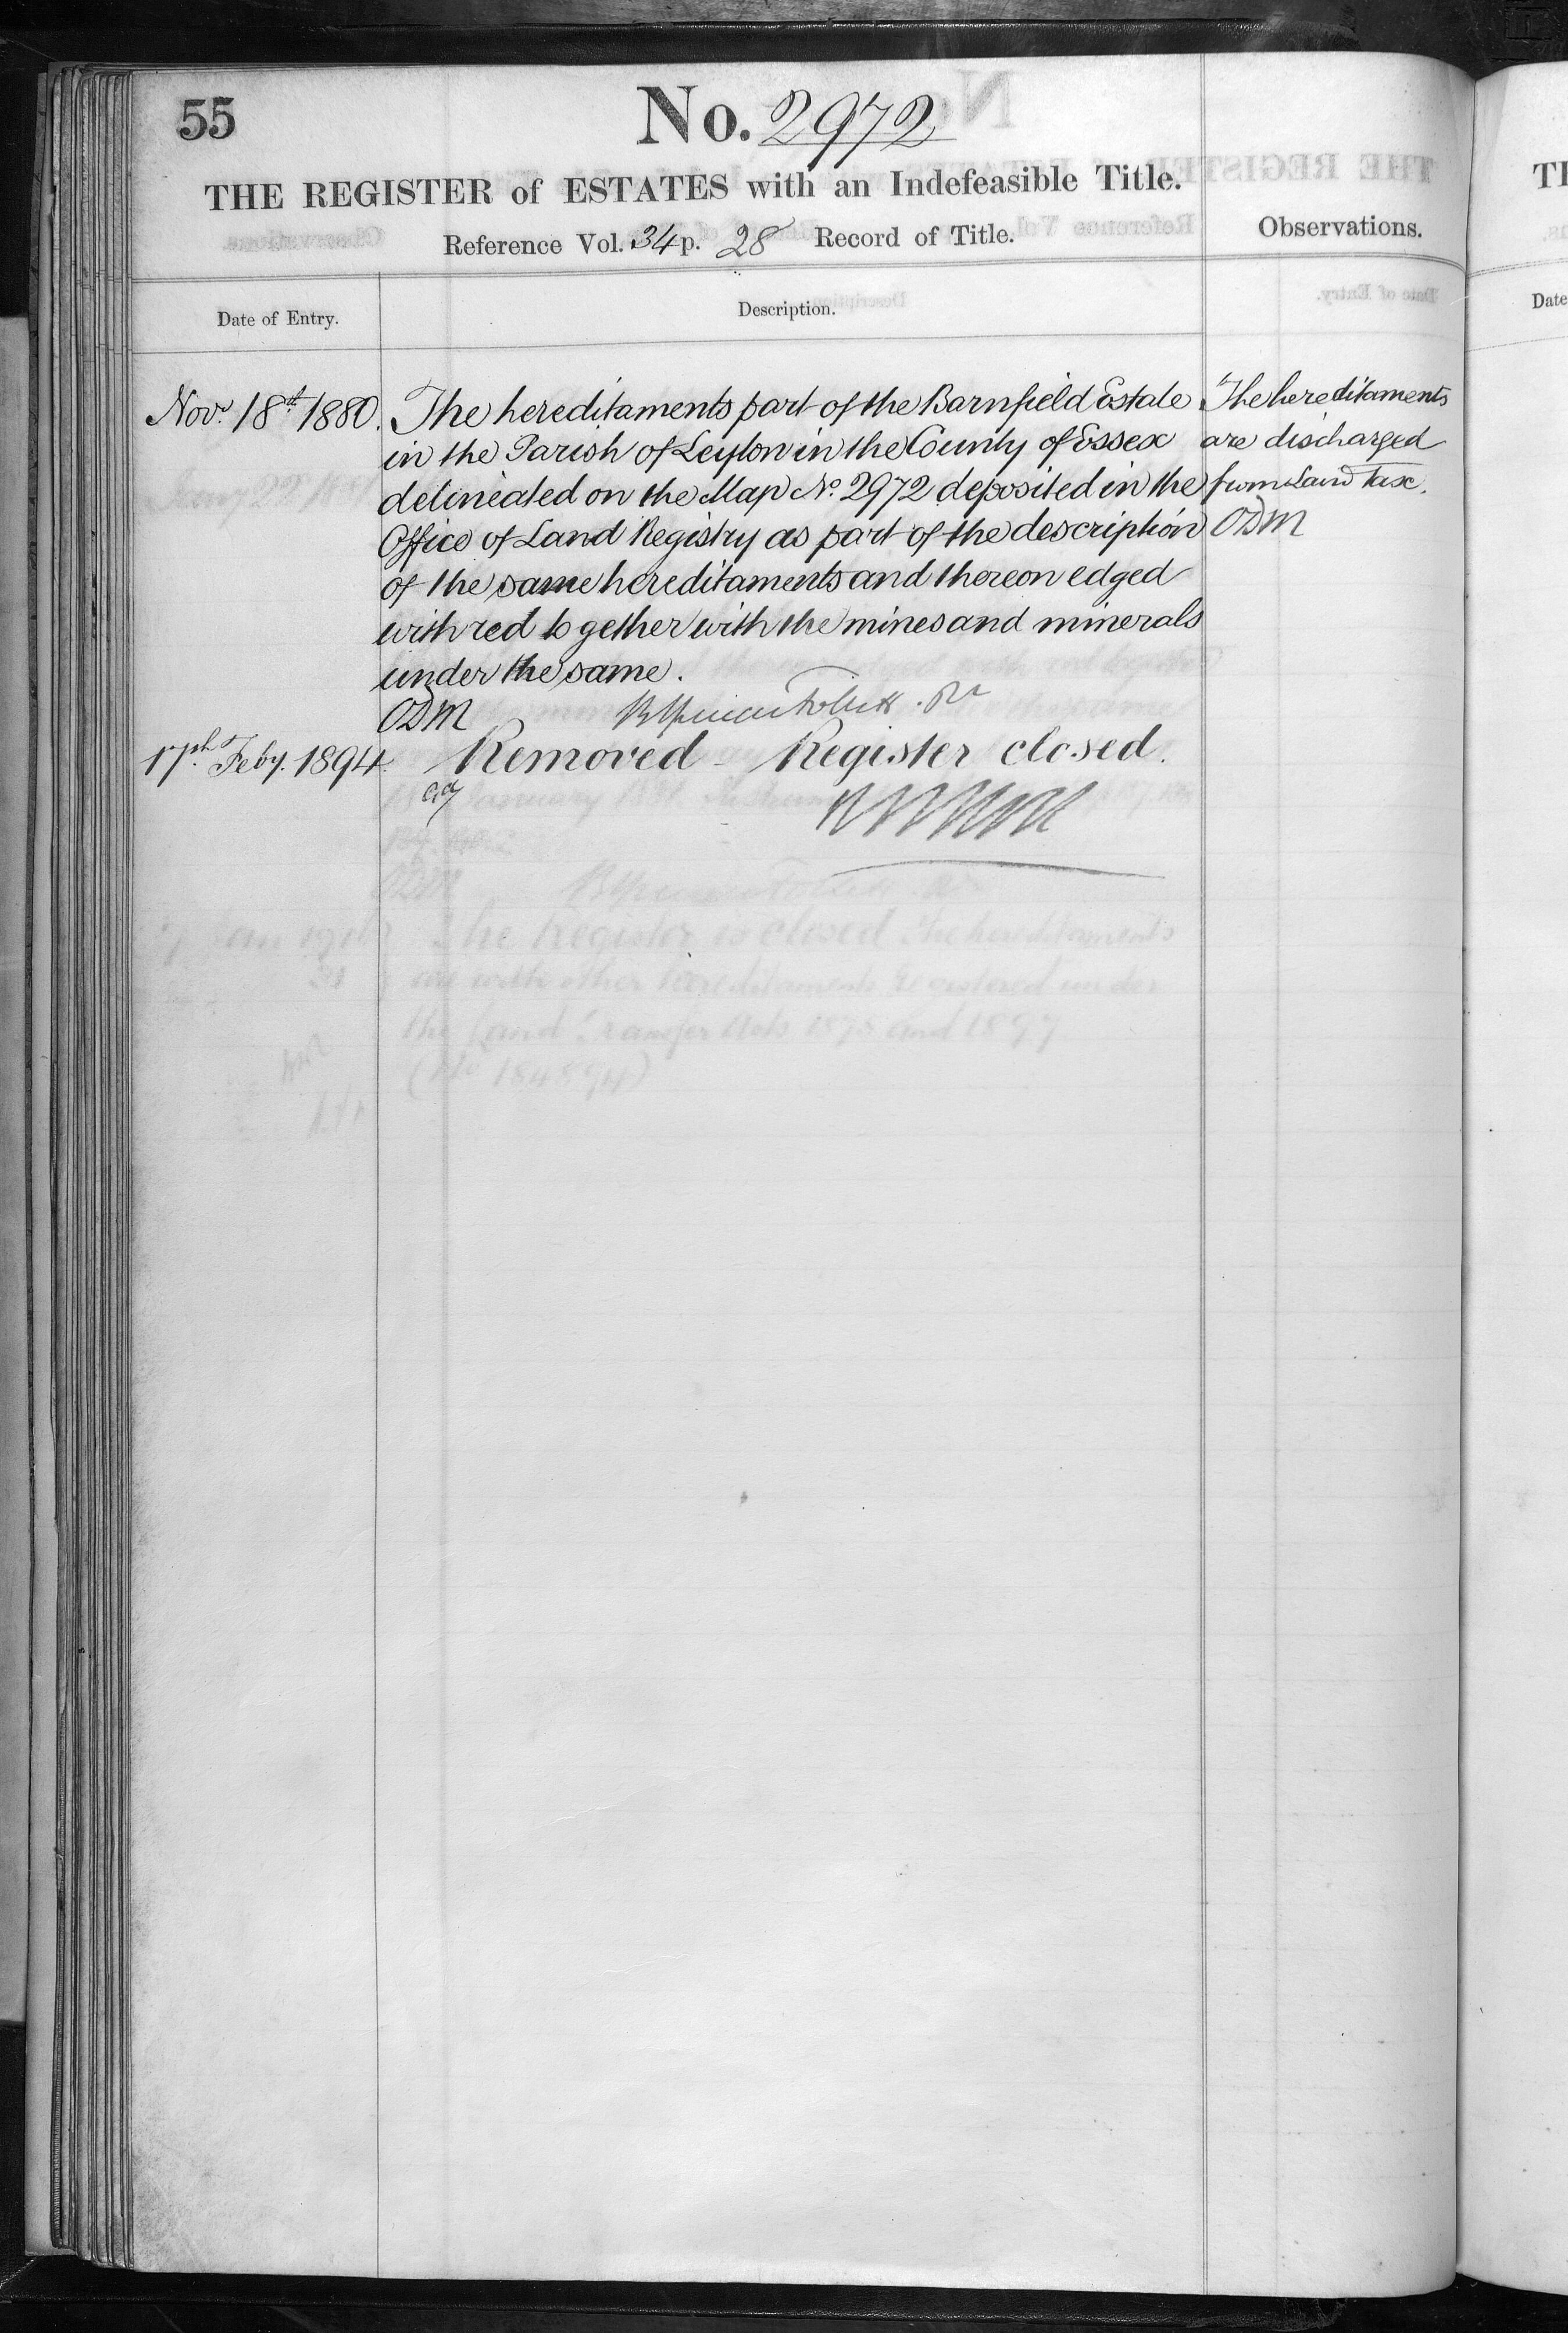 55
No. 2972
THE REGISTER of ESTATES with an Indefeasible Title.
Reference Vol. 34 p. 28 Record of Title.
Observations.
Date of Entry.
Description.
Nov. 18th 1880.
The hereditaments part of the Barnfield Estate
in the Parish of Leyton in the County of Essex
delineated on the Map No. 2972 deposited in the
Office of Land Registry as part of the description
of the same hereditaments and thereon edged
with red together with the mines and minerals
under the same.
ODM
The hereditaments
are discharged
from Land Tax.
ODM
17th Feby. 1894
Removed - Register closed.
The Register is closed The hereditaments
are with other hereditaments registered under
the Land Transfer Acts 1875 and 1897
(No 184894)
Date